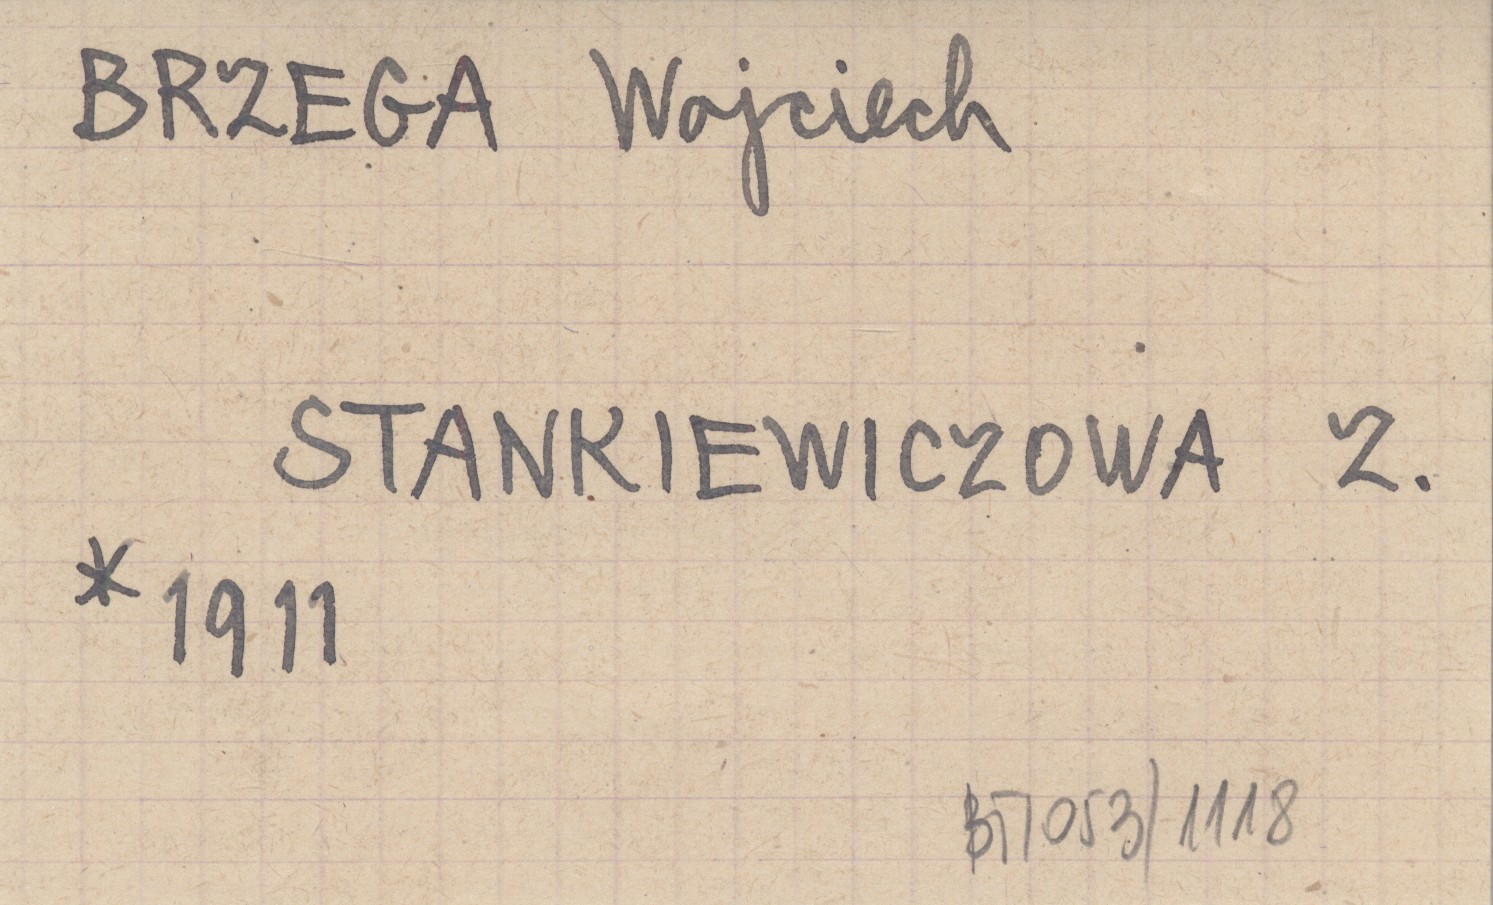 BRZEGA Wojciech
STANKIEWICZOWA Z.
* 1911
BT/053/1118